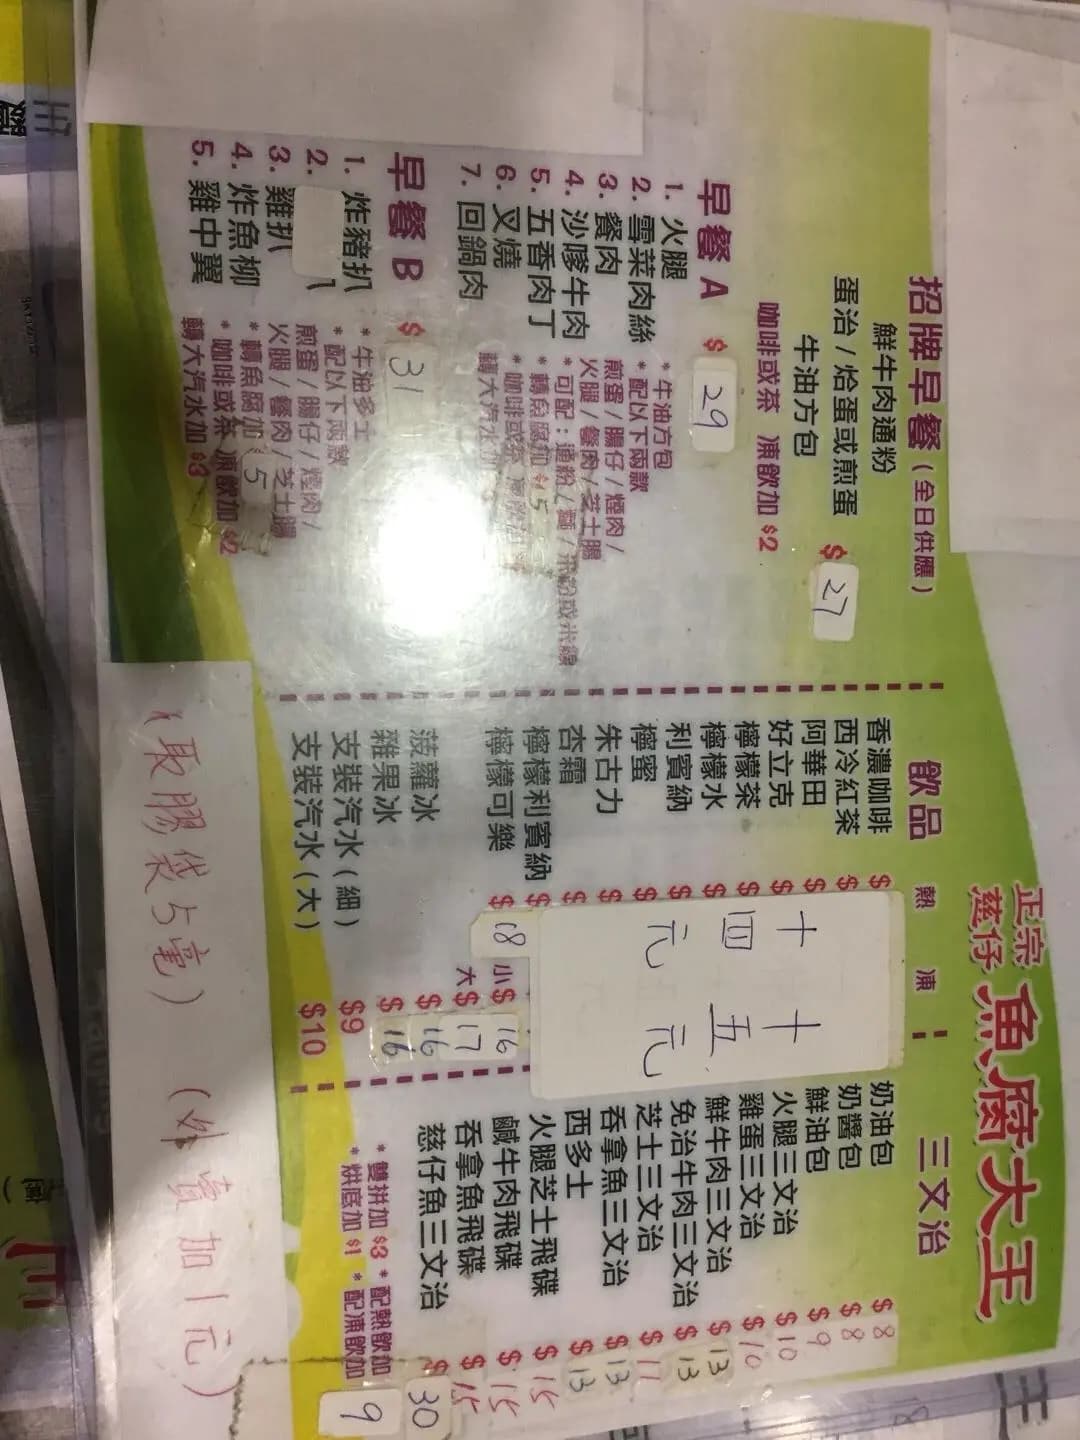 正宗
慈仔
魚腐大王
招牌早餐(全日供應)
鮮牛肉通粉
蛋治/烚蛋或煎蛋
牛油方包
$27
咖啡或茶 凍飲加$2
早餐A $29
1. 火腿
2. 雪菜肉絲
3. 餐肉
4. 沙嗲牛肉
5. 五香肉丁
6. 叉燒
7. 回鍋肉
*牛油方包
*配以下兩款
煎蛋/腸仔/煙肉/
火腿/餐肉/芝士腸
*可配:通粉/麵/米粉或米線
*轉魚腐加$5
*咖啡或茶
轉大汽水加
早餐B $31
1. 炸豬扒
2.
3. 雞扒
4. 炸魚柳
5. 雞中翼
*牛油多士
*配以下兩款
煎蛋/腸仔/煙肉/
火腿/餐肉/芝士腸
*轉魚腐加$5
*咖啡或茶 凍飲加$2
轉大汽水加$3
飲品 熱 凍
香濃咖啡 $
西冷紅茶 $
阿華田 $
好立克 $
檸檬茶 $
檸檬水 $
利賓納 $
檸蜜 $
朱古力 $
杏霜 $
檸檬利賓納 $
檸檬可樂 $18 小$16
大$17
菠蘿冰 $16
雜果冰 $16
支裝汽水(細) $9
支裝汽水(大) $10
十四元
十五元
三文治
奶油包 $8
奶醬包 $8
鮮油包 $9
火腿三文治 $10
雞蛋三文治 $10
鮮牛肉三文治 $13
免治牛肉三文治 $13
芝士三文治 $11
吞拿魚三文治 $13
西多士 $13
火腿芝士飛碟 $15
鹹牛肉飛碟 $15
吞拿魚飛碟 $15
慈仔魚三文治 $30
*雙拼加$3 *配熱飲加
*烘底加$1 *配凍飲加
9
(取膠袋5毫) (外賣加1元)